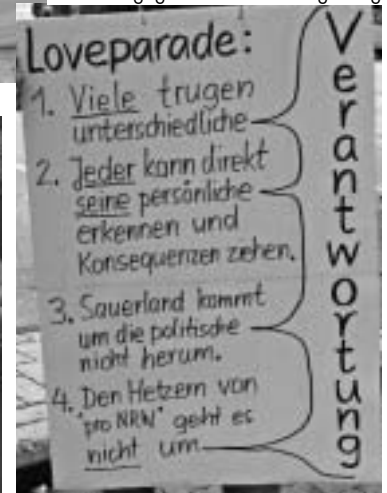 Loveparade:
1. Viele trugen
unterschiedliche
2. Jeder kann direkt
seine persönliche
erkennen und
Konsequenzen ziehen.
3. Sauerland kommt
um die politische
nicht herum.
4. Den Hetzern von
"pro NRW" geht es
nicht um
Verantwortung